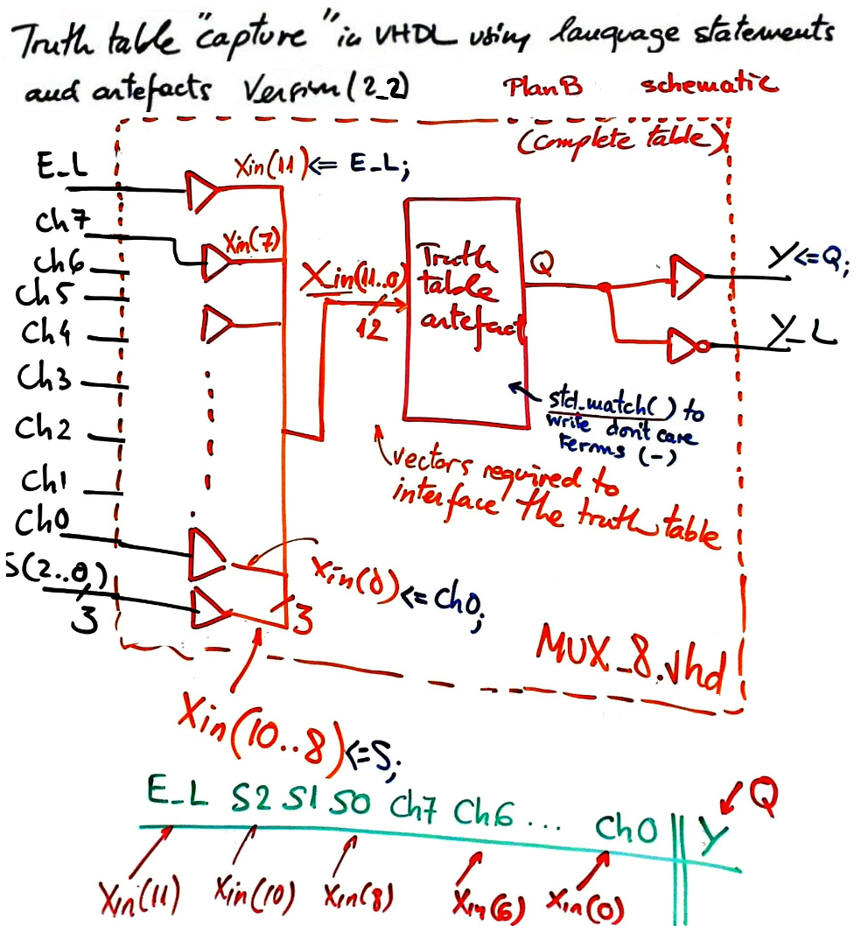 Truth table "capture" in VHDL using language statements
and artefacts Version (2_2) Plan B schematic
(complete table)
E_L
Xin(11) <= E_L;
Ch7
Xin(7)
Ch6
Ch5
Ch4
Ch3
Ch2
Ch1
Ch0
S(2..0)
3
X_in(11..0)
12
Truth
table
artefact
Q
Y <= Q;
Y_L
std_match() to
write don't care
terms (-)
vectors required to
interface the truth table
Xin(0) <= Ch0;
3
MUX_8.vhd
Xin(10..8) <= S;
E_L S2 S1 S0 Ch7 Ch6 ... Ch0 Y Q
Xin(11) Xin(10) Xin(8) Xin(6) Xin(0)